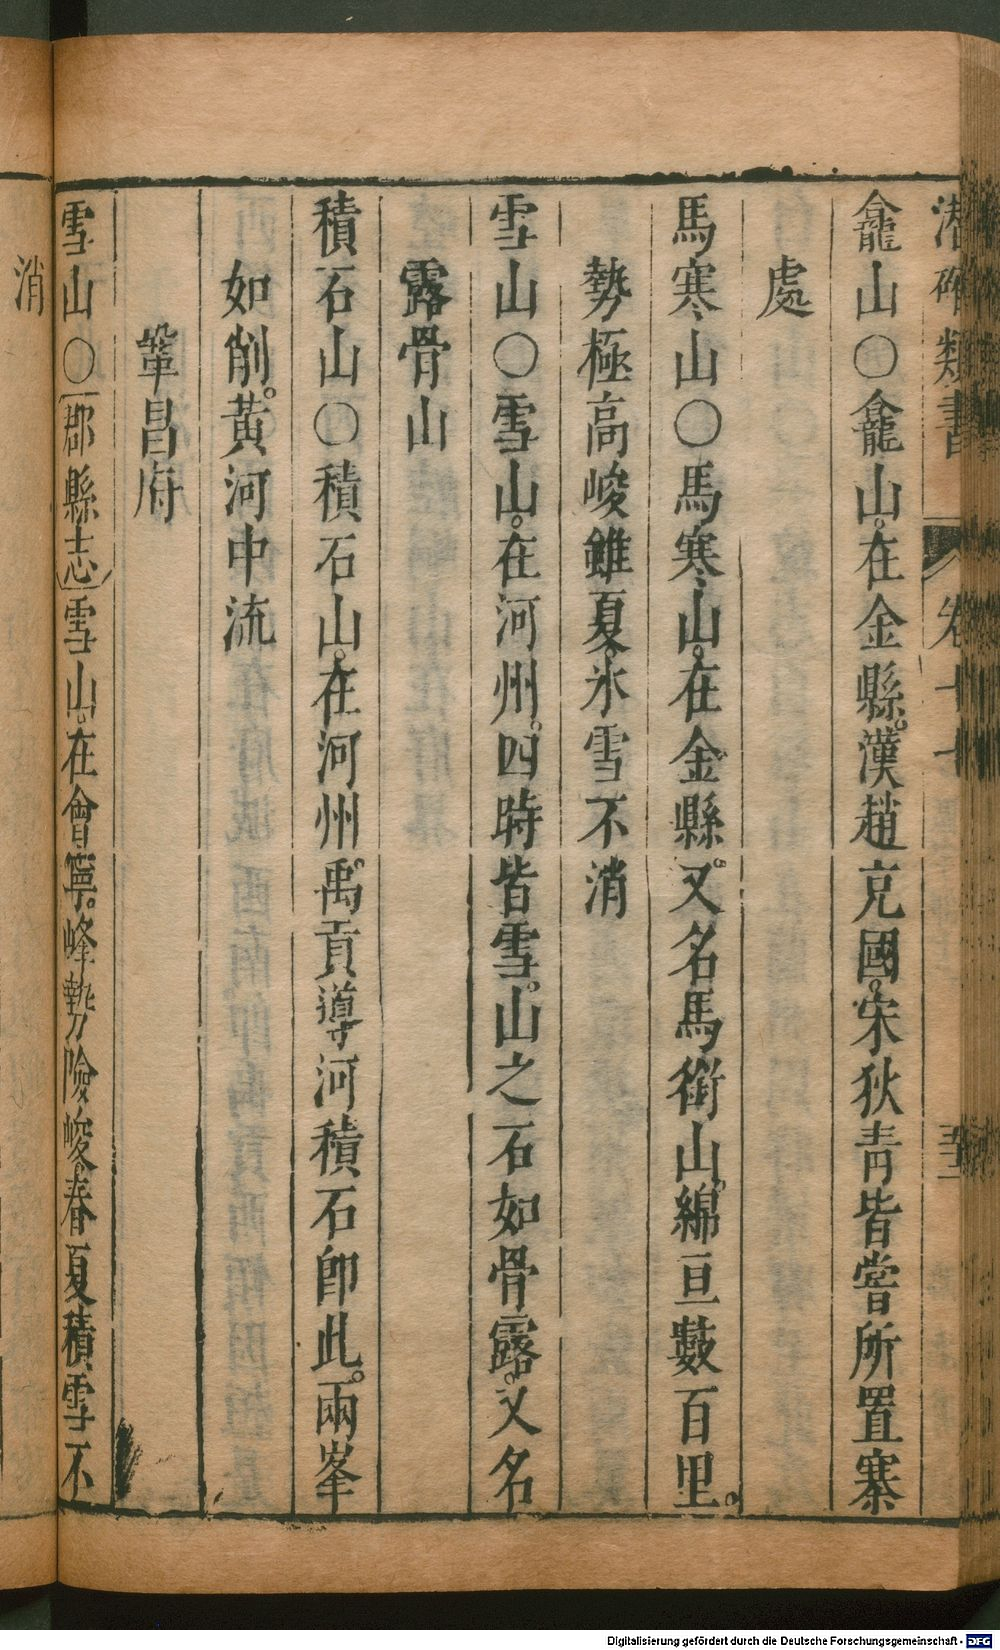 潛確類書 卷十七 五十一
龕山○龕山。在金縣。漢趙充國。宋狄青皆嘗所置寨
處
馬寒山○馬寒山。在金縣。又名馬銜山。綿亘數百里。
勢極高峻雖夏。氷雪不消
雪山○雪山。在河州。四時皆雪。山之石如骨露。又名
露骨山
積石山○積石山。在河州。禹貢導河積石卽此。兩峯
如削。黃河中流
鞏昌府
雪山○郡縣志雪山。在會寧。峰勢險峻。春夏積雪不
消
Digitalisierung gefördert durch die Deutsche Forschungsgemeinschaft - DFG